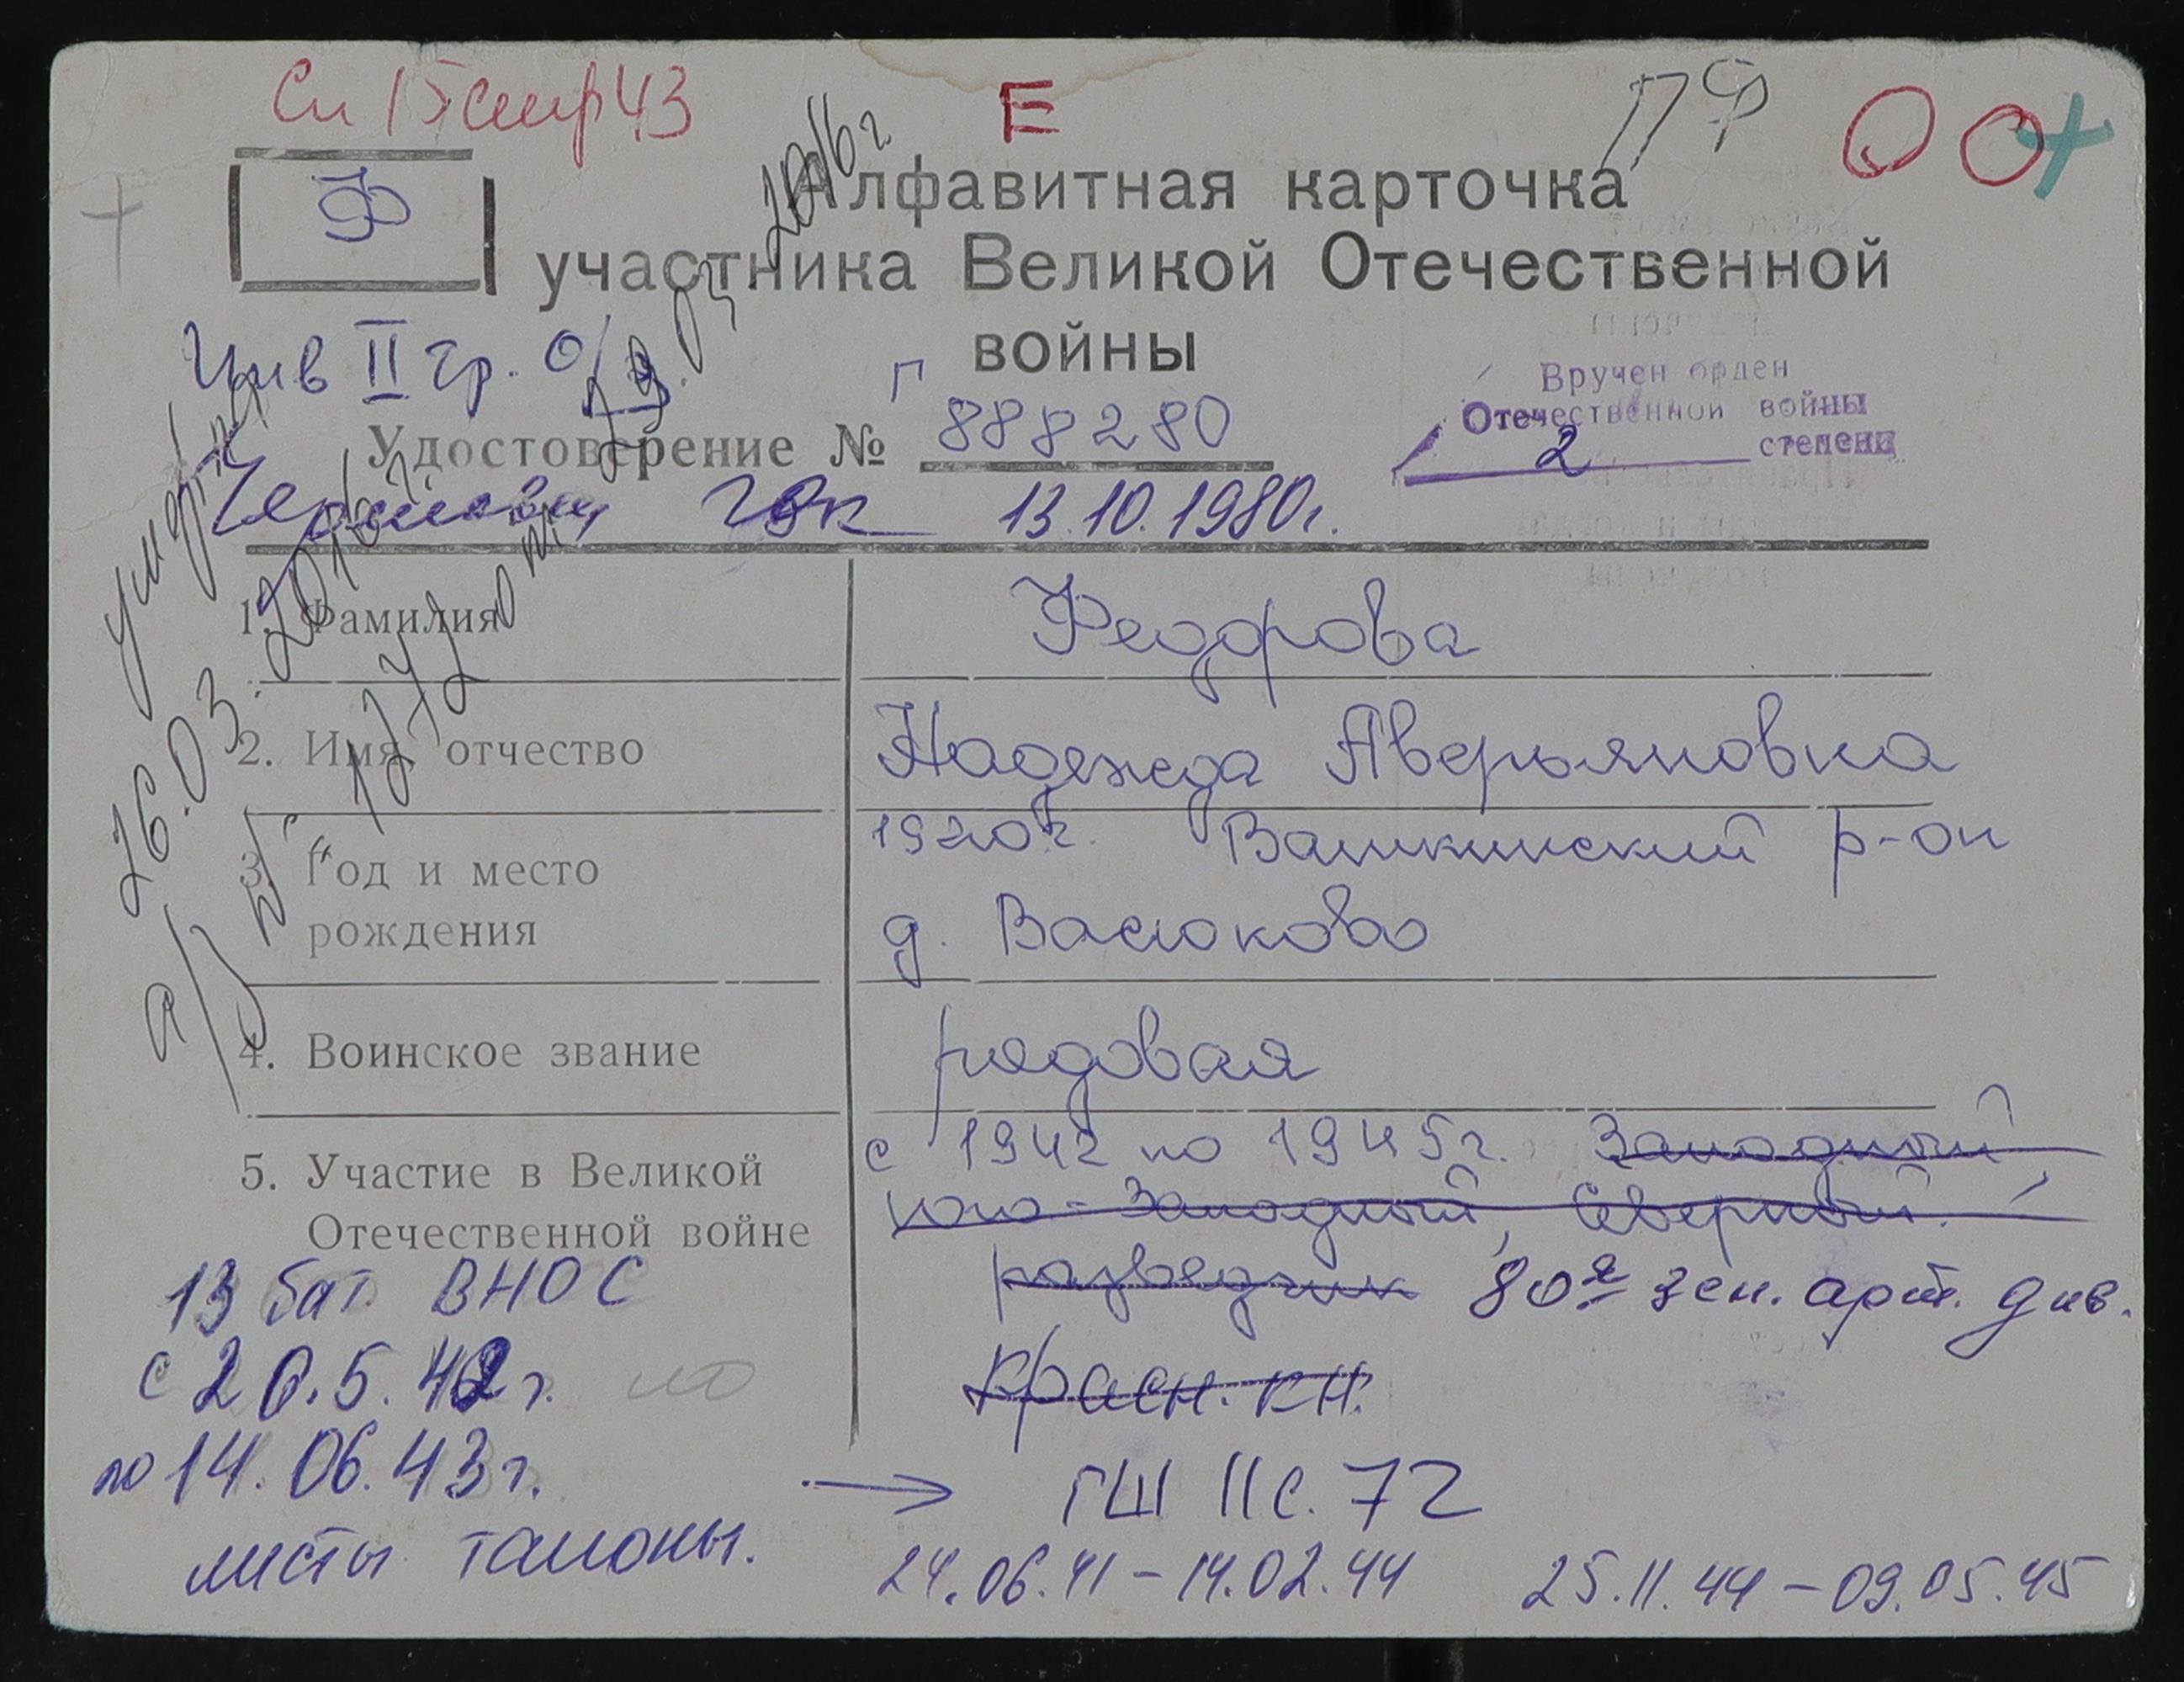 Е
ПФ
О О +
Ф
Алфавитная карточка
участника Великой Отечественной
войны
Инв II гр. о/з
Вручен орден
Отечественной войны
2 степени
Удостоверение № Г 888280
ГВК 13.10.1980г.
умерла
26.03.2016г.
1. Фамилия Федорова
2. Имя, отчество Надежда Аверьяновна
3. Год и место рождения 1920г. Вашкинский р-он
д. Васюково
4. Воинское звание рядовая
5. Участие в Великой Отечественной войне
с 1942 по 1945г. Западный
юго-Западный, Северный.
разведчик 80я зен. арт. див.
красн. кн.
13 бат. ВНОС
с 20.5.42г. по
по 14.06.43г.
листы талоны.
→ ГШ II с. 72
24.06.41 – 14.02.44 25.11.44 – 09.05.45